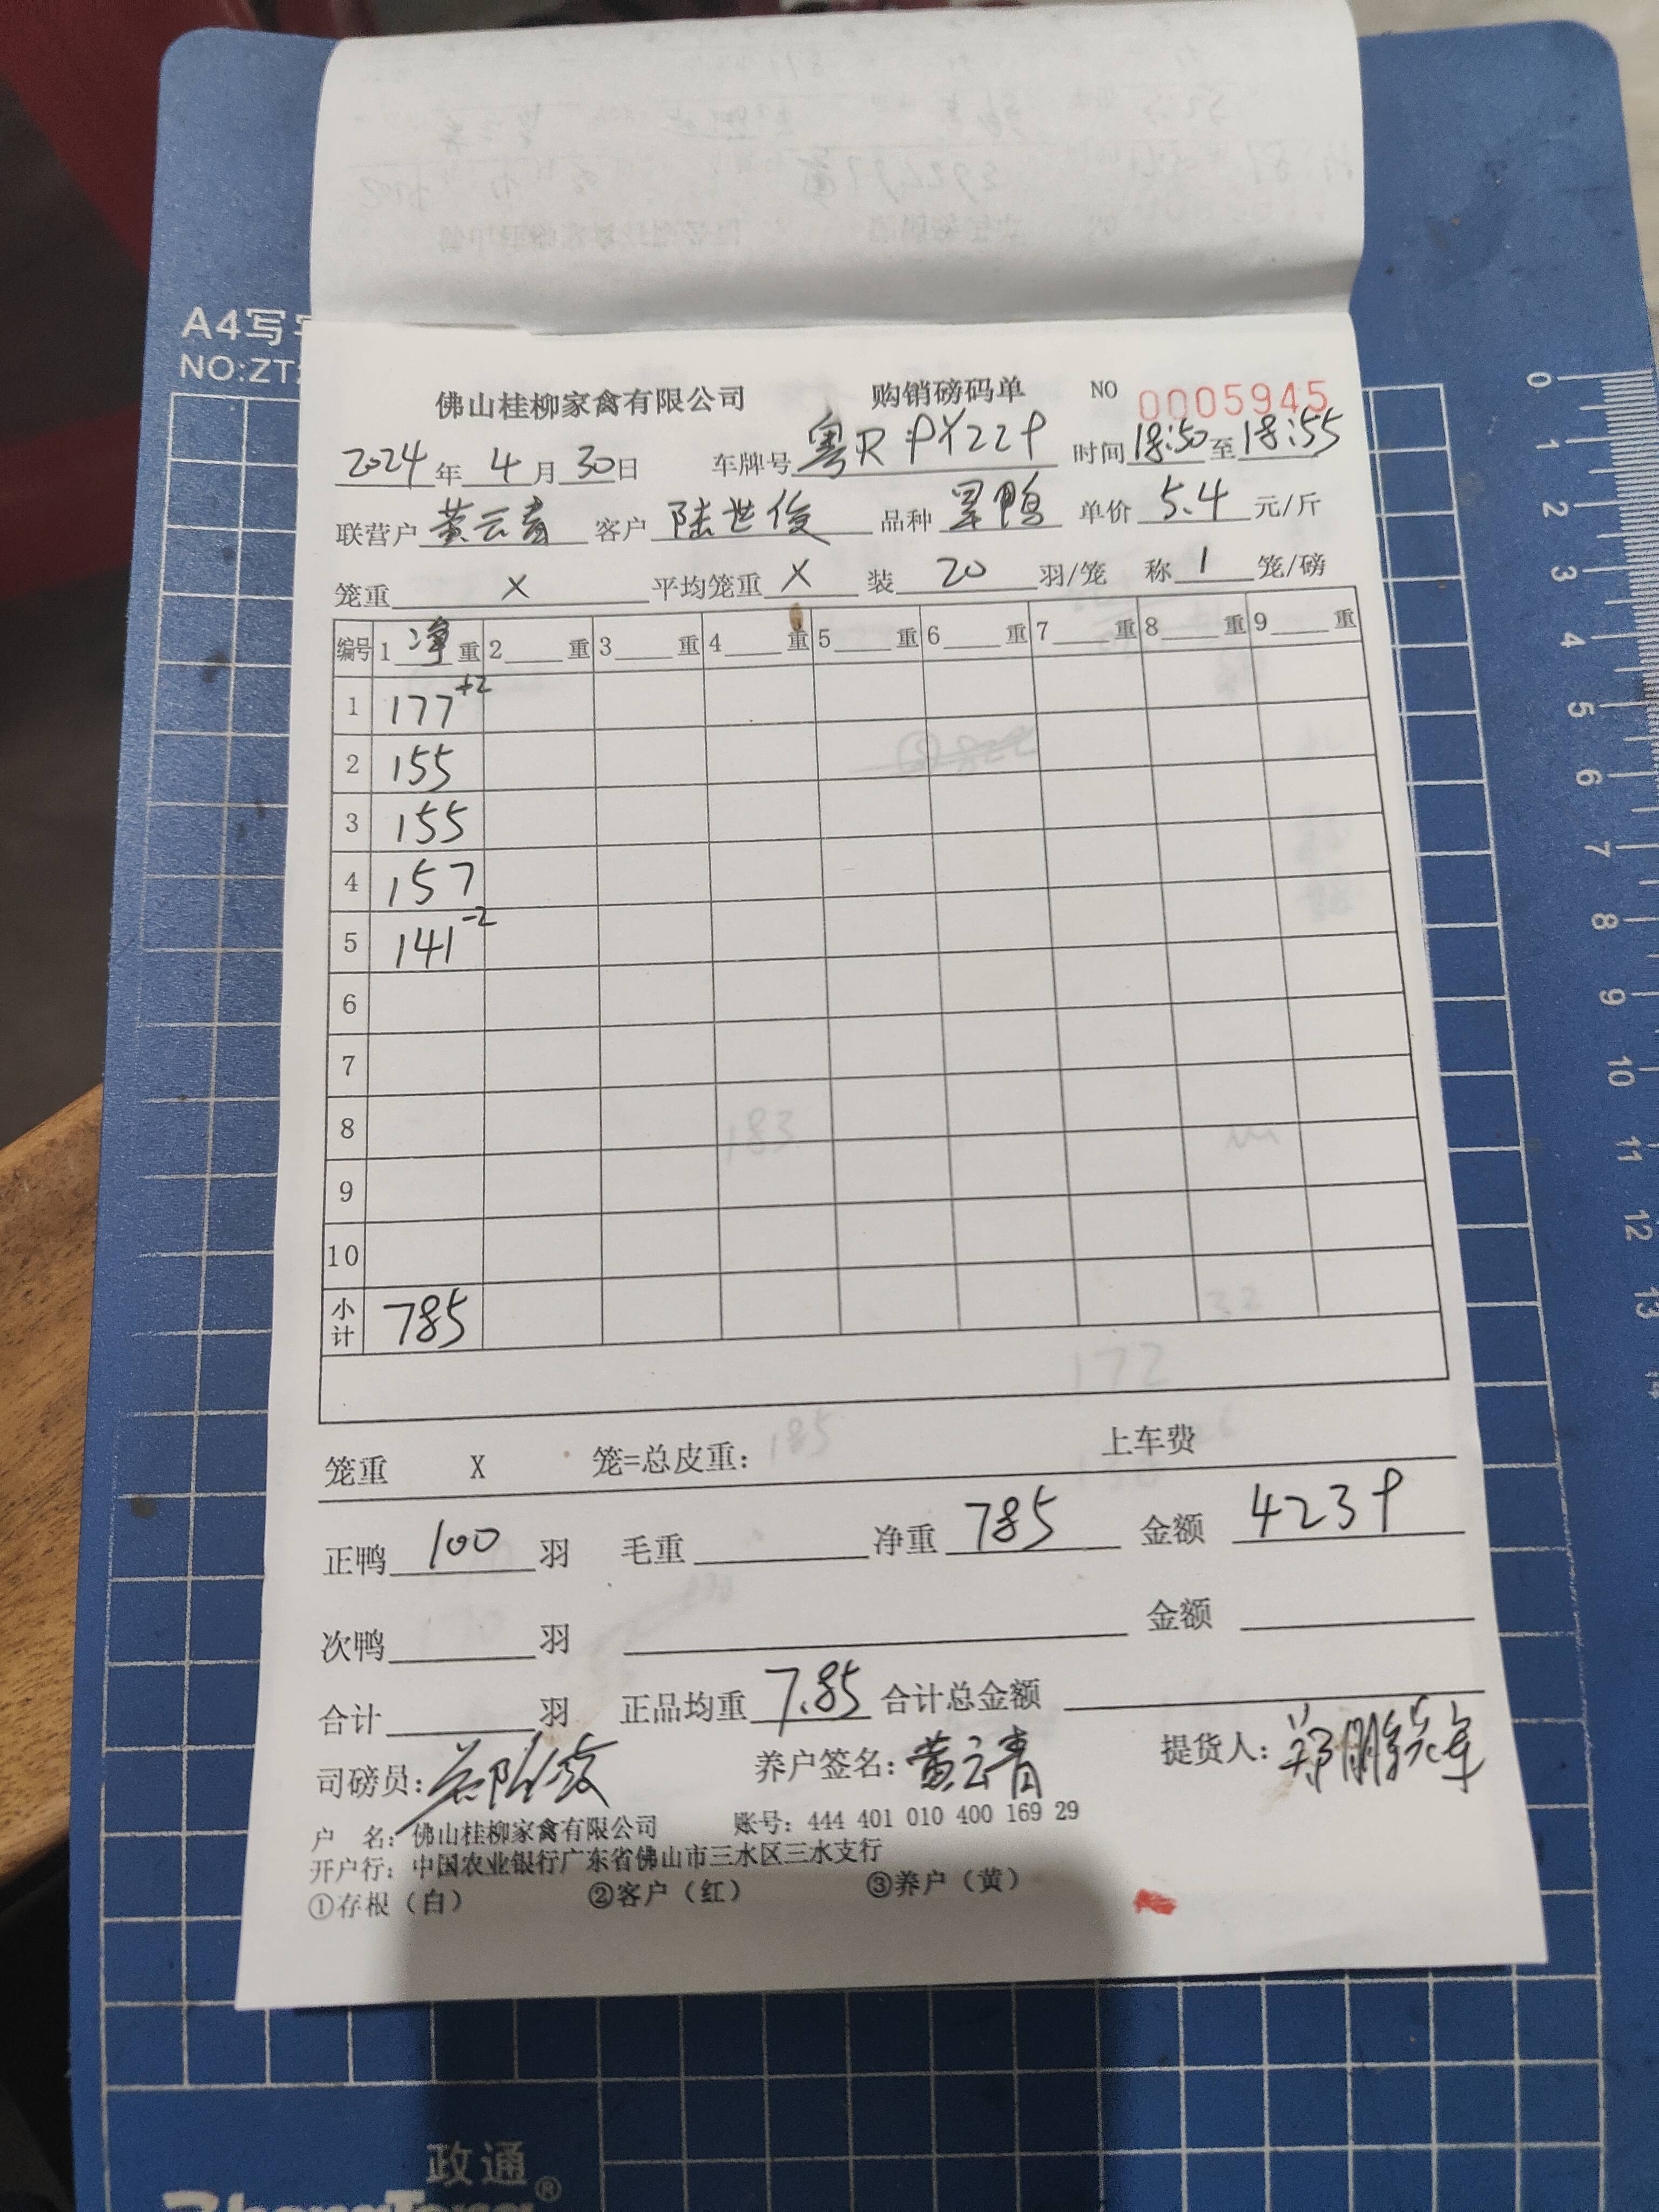 A4写
NO:ZT
佛山桂柳家禽有限公司 购销磅码单 NO 0005945
2024年 4月 30日 车牌号 粤R PY229 时间 18:50 至 18:55
联营户 黄云青 客户 陆世俊 品种 旱鸭 单价 5.4 元/斤
笼重 X 平均笼重 X 装 20 羽/笼 称 1 笼/磅
编号 1 净 重 2 重 3 重 4 重 5 重 6 重 7 重 8 重 9 重
1 177 +2
2 155
3 155
4 157
5 141 -2
6
7
8
9
10
小计 785
笼重 X 笼=总皮重: 上车费
正鸭 100 羽 毛重 净重 785 金额 4239
次鸭 羽 金额
合计 羽 正品均重 7.85 合计总金额
司磅员: 养户签名: 黄云青 提货人: 郑鹏
户 名: 佛山桂柳家禽有限公司 账号: 444 401 010 400 169 29
开户行: 中国农业银行广东省佛山市三水区三水支行
①存根（白） ②客户（红） ③养户（黄）
0
1
2
3
4
5
6
7
8
9
10
11
12
13
14
政通®